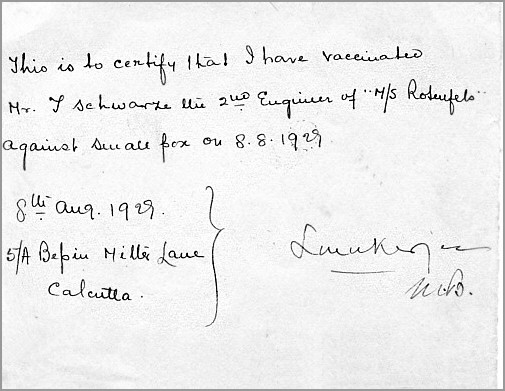 This is to certify that I have vaccinated
Mr. T Schwarze the 2nd Engineer of "M/S Rotenfels"
against small pox on 8.8.1929
8th Aug. 1929.
5/A Bepin Mitter Lane
Calcutta.
Mukerjee
M.B.